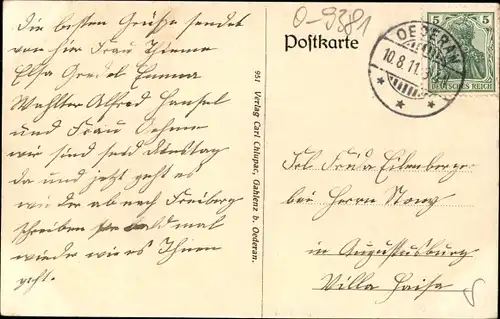 Die besten Grüße sendet
von hier Frau Thieme
Elsa Gretel Emma
Walther Alfred Hensel
und Frau Oehme
wir sind seid Dienstag
da und jetzt geht es
wieder ab nach Freiberg
schreiben sie bald mal
wieder wie es Ihnen
geht.
951 Verlag Carl Chlupac, Gahlenz b. Oederan.
O-9381
Postkarte
OEDERAN
10.8.11.
5 5
DEUTSCHES REICH
Frl Frieda Eilenberger
bei Herrn
in Augustusburg
Villa